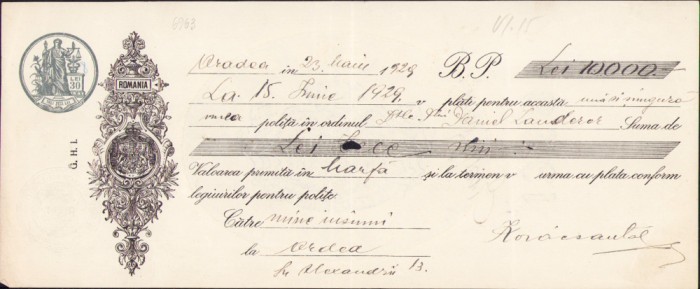 6963
VI.15
LEI 30
ROMANIA
G. H. I.
Oradea în 23 Maiu 1929 B. P. Lei 10000.-
La 15. Iunie 1929 v plate pentru aceasta una si singura
poliţă în ordinul Dlui Daniel Suma de
Lei Zece mii
Valoarea primită în Marfă şi la termen v urma cu plata conform
legiurilor pentru poliţe
Către mine insumi
la Ordea
Str Alexandri 13.